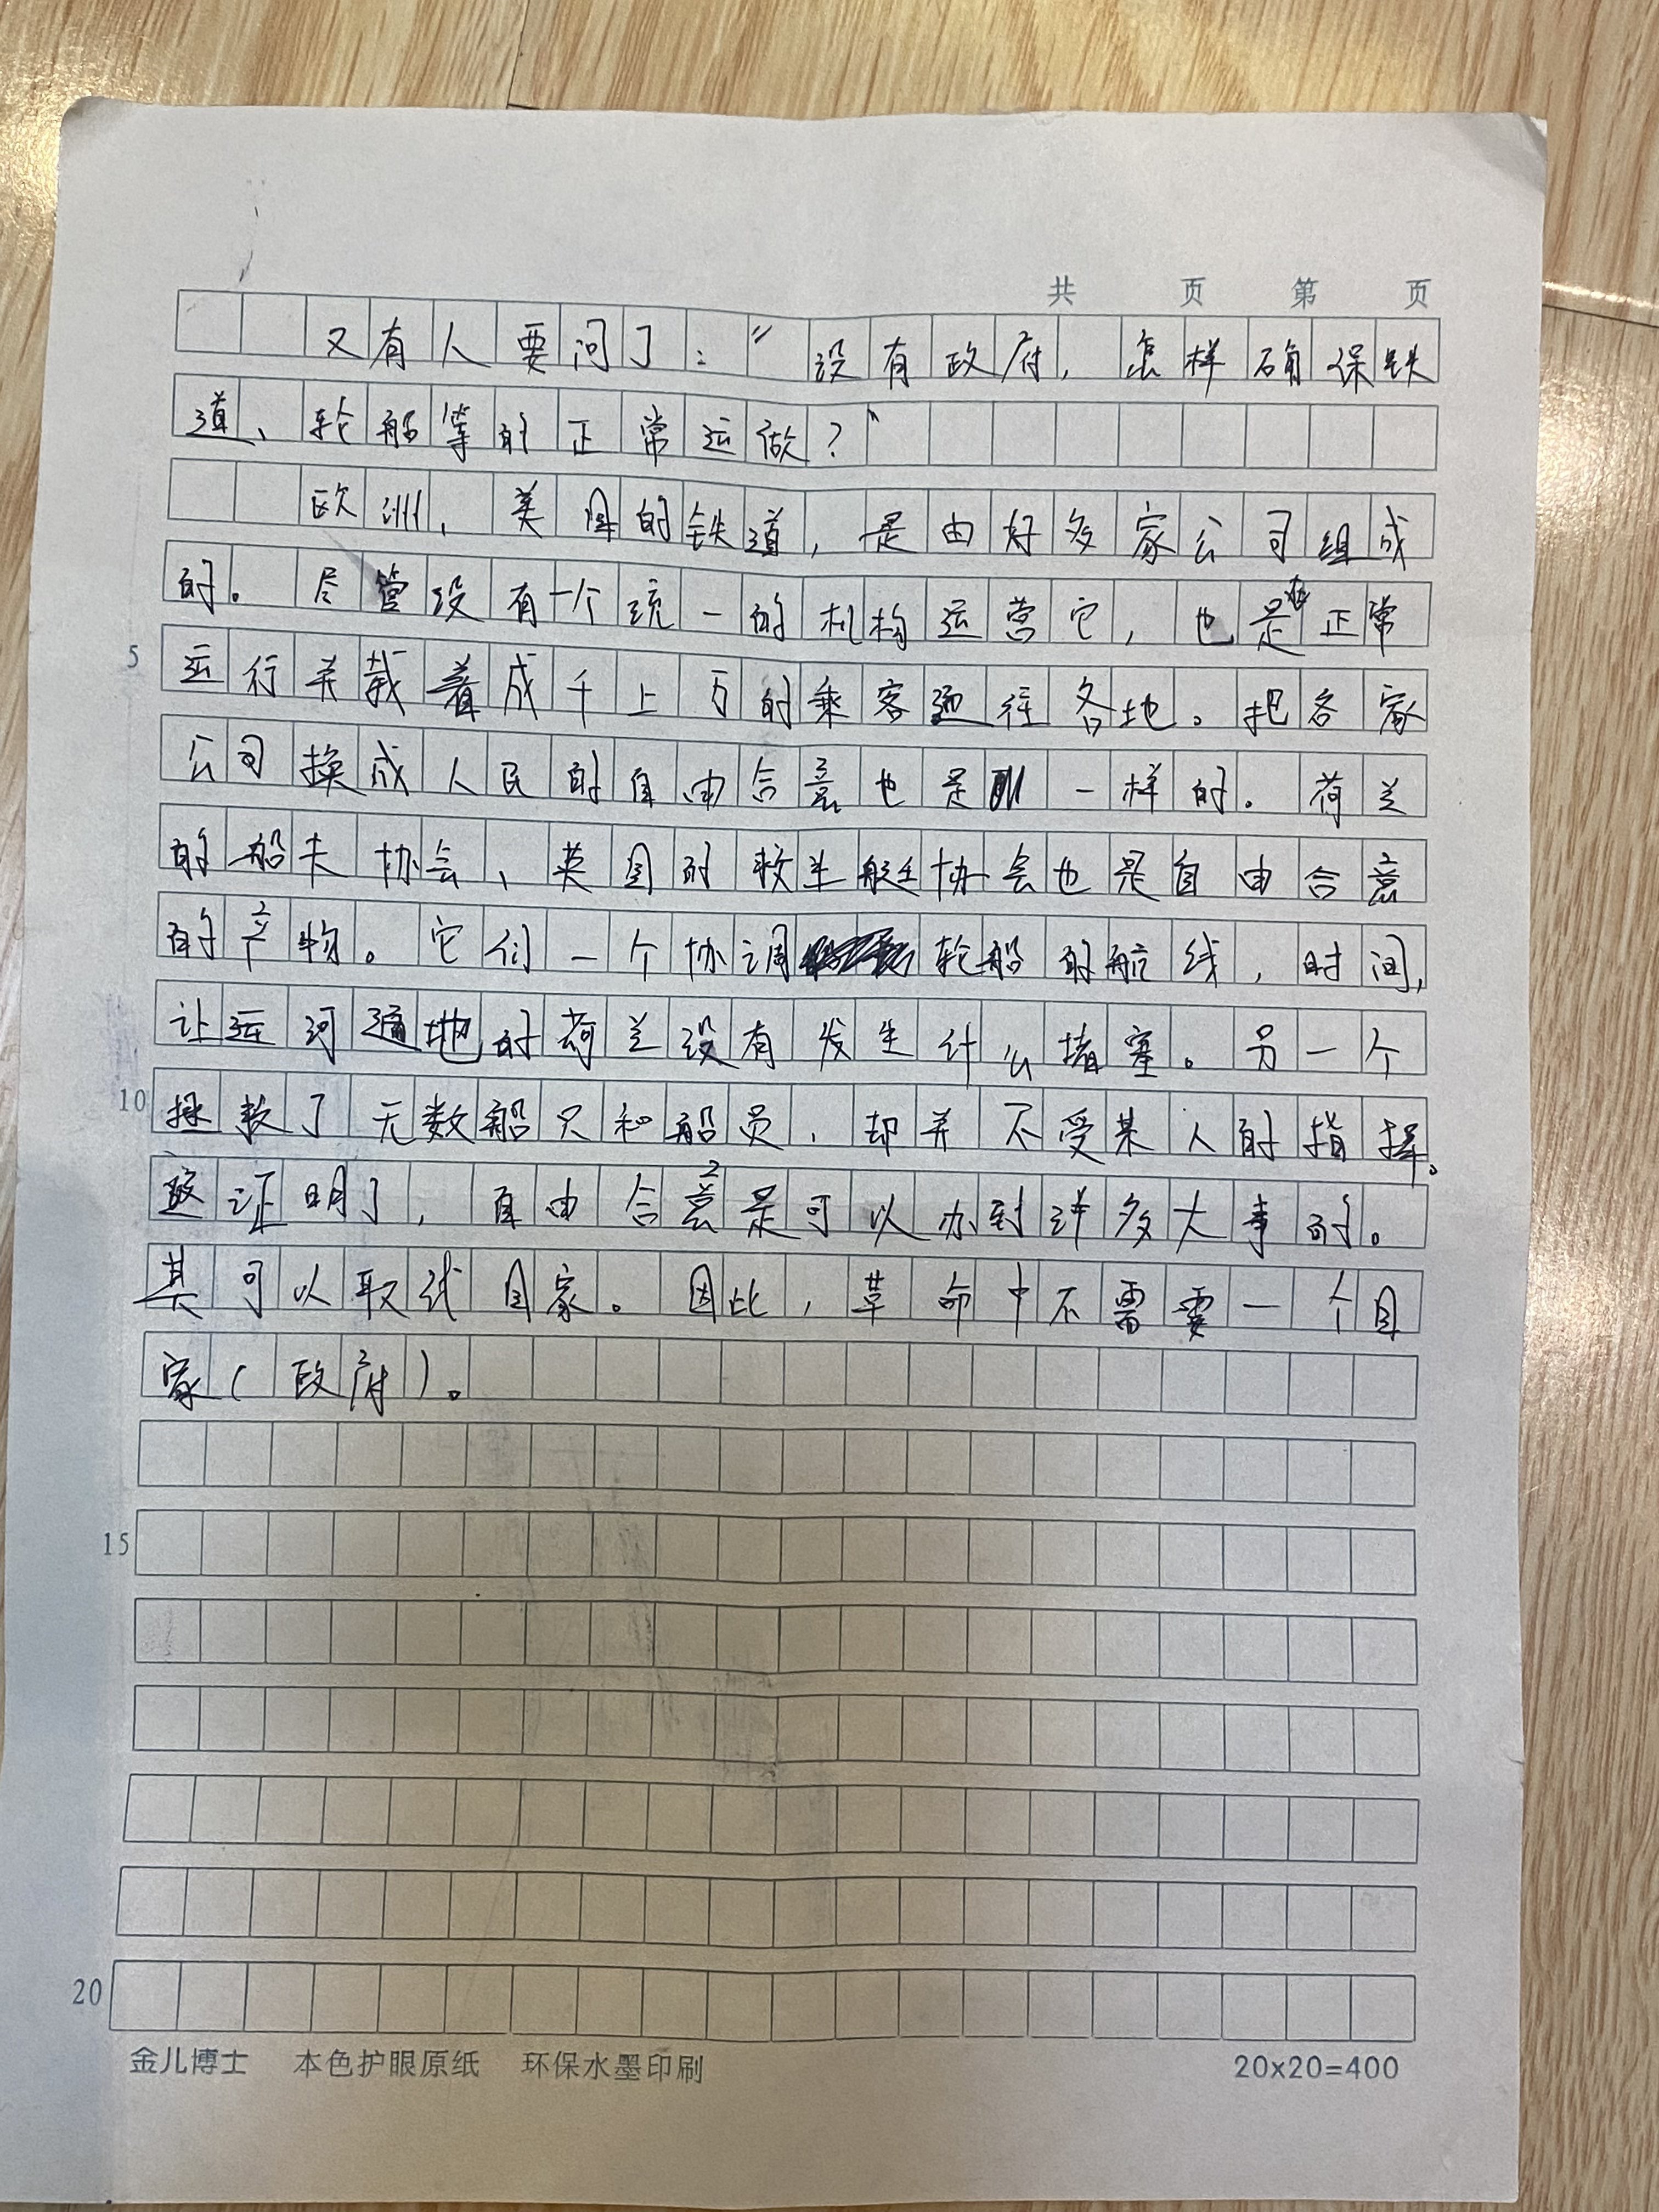 共 页 第 页
又有人要问了："没有政府，怎样确保铁
道、轮船等的正常运做？"
欧洲、美国的铁道，是由好多家公司组成
的。尽管没有一个统一的机构运营它，也是在正常
5 运行并载着成千上万的乘客通往各地。把各家
公司换成人民的自由合意也是一样的。荷兰
的船夫协会、英国的救生艇协会也是自由合意
的产物。它们一个协调轮船的航线，时间，
让运河遍地的荷兰没有发生什么堵塞。另一个
10 拯救了无数船只和船员，却并不受某人的指挥。
这证明了，自由合意是可以办到许多大事的。
其可以取代国家。因此，革命中不需要一个国
家（政府）。
15
20
金儿博士 本色护眼原纸 环保水墨印刷 20x20=400